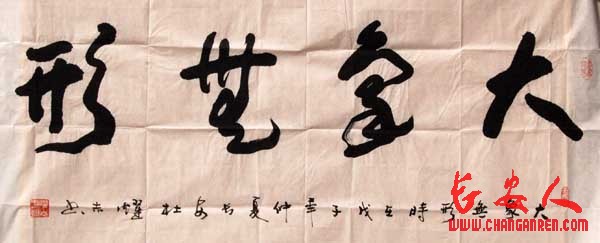 大象無形
大象無形時在戊子年仲夏长安杜
长安人
WWW.CHANGANREN.COM